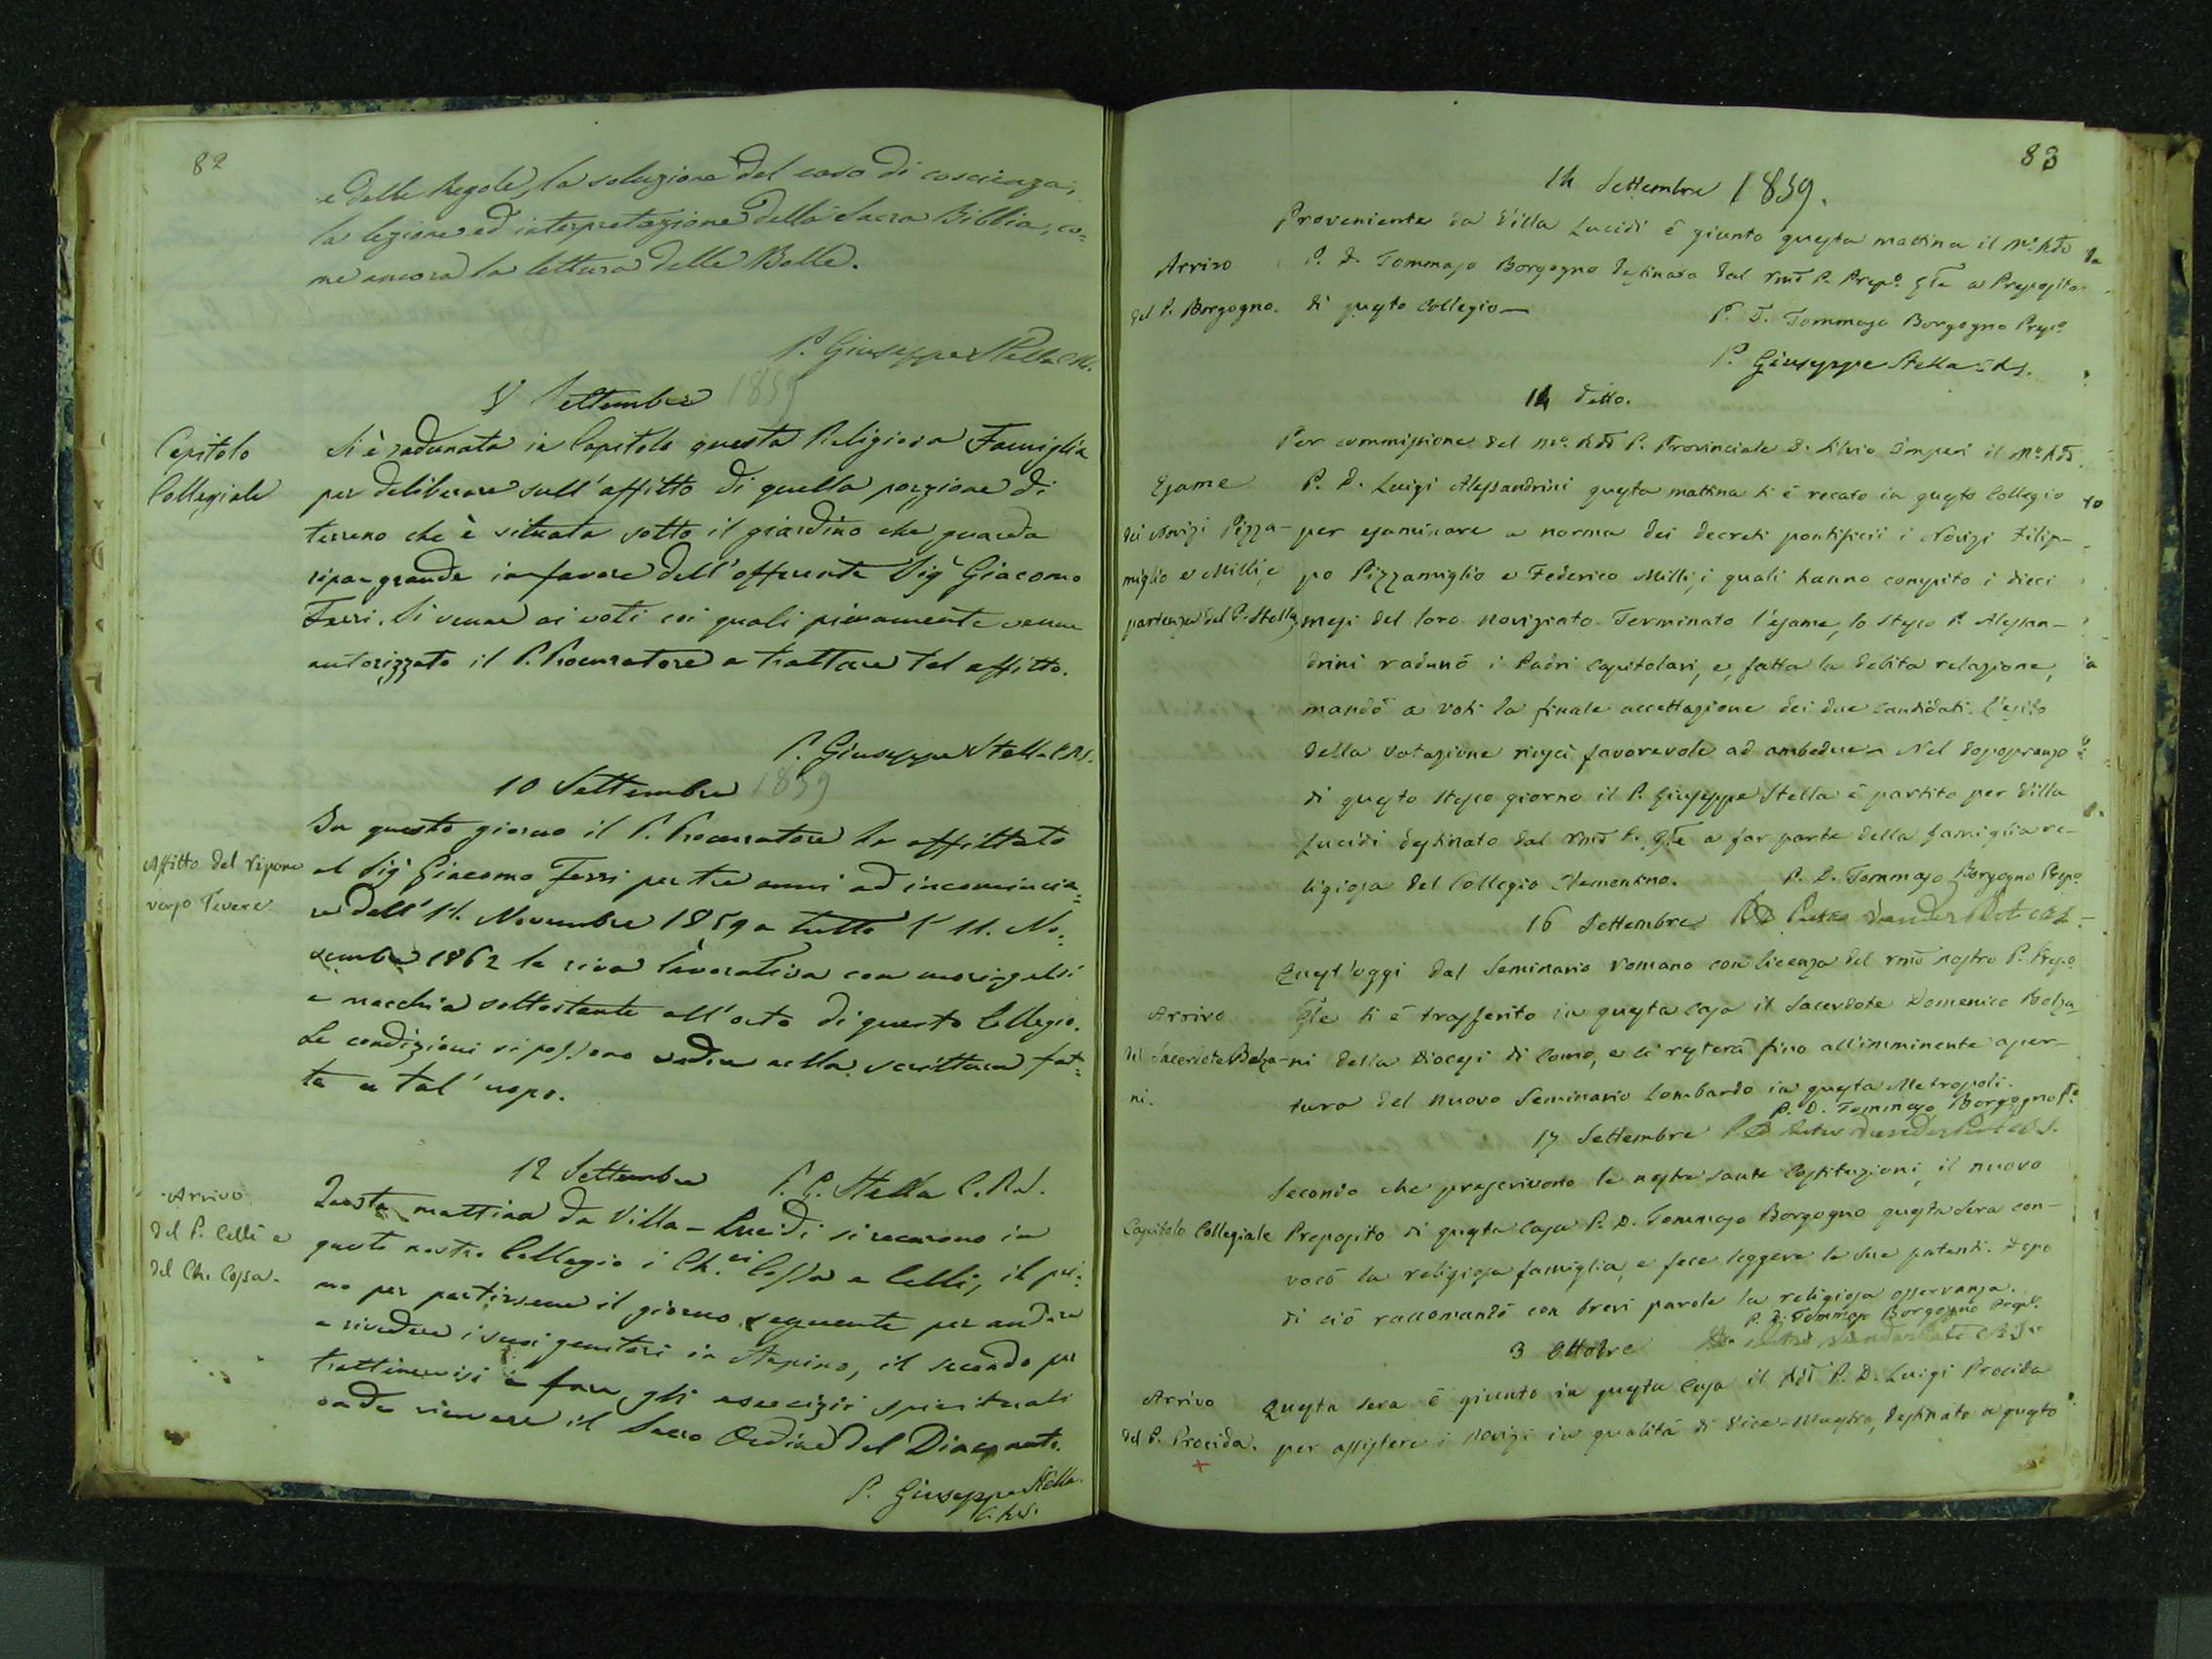 82
e delle Regole, la soluzione del caso di coscienza,
la lezione ed interpretazione della Sacra Bibbia, co=
me ancora la lettura delle Bolle.
P. Giuseppe Stella CRS.
8 Settembre 1859
Capitolo
Collegiale
Si è radunata in Capitolo questa Religiosa Famiglia
per deliberare sull'affitto di quella porzione di
terreno che è situata sotto il giardino che guarda
ripa-grande in favore dell'offerente Sig. Giacomo
Ferri. Si venne ai voti coi quali pienamente venne
autorizzato il P. Procuratore a trattare tal affitto.
P. Giuseppe Stella CRS.
10 Settembre 1859
Affitto del ripone
verso Tevere.
In questo giorno il P. Procuratore ha affittato
al Sig. Giacomo Ferri per tre anni ad incomincia=
re dell'11. Novembre 1859 a tutto l'11. No=
vembre 1862 la riva lavorativa con
e macchia sottostante all'orto di questo Collegio.
Le condizioni si possono vedere nella scrittura fat=
ta a tal'uopo.
P. G. Stella C.R.S.
12 Settembre
Arrivo
del P. Celli e
del Ch. Cossa.
Questa mattina da Villa-Lucidi si recarono in
questo nostro Collegio i Ch.ci Cossa e Celli, il pri=
mo per partirsene il giorno seguente per andare
a rivedere i suoi genitori in Arpino, il secondo per
trattenervisi a fare gli esercizii spirituali
onde ricevere il Sacro Ordine del Diaconato.
P. Giuseppe Stella
C.R.S.
83
14 Settembre 1859.
Arrivo
del P. Borgogno.
Proveniente da Villa Lucidi è giunto questa mattina il M.o Rdo
P. D. Tommaso Borgogno destinato dal Rmo P. Prep.o Gle a Preposito
di questo Collegio—
P. D. Tommaso Borgogno Prep.o
P. Giuseppe Stella CRS.
14 detto.
Esame
dei Novizi Pizza-
miglio e Milli, e
partenza del P. Stella
Per commissione del M.o Rdo P. Provinciale D. Silvio Imperi il M.o Rdo
P. D. Luigi Alessandrini questa mattina si è recato in questo Collegio
per esaminare a norma dei decreti pontificii i Novizi Filip-
po Pizzamiglio e Federico Milli, i quali hanno compito i dieci
mesi del loro noviziato. Terminato l'esame, lo stesso P. Alessan-
drini radunò i Padri Capitolari, e, fatta la debita relazione,
mandò a voti la finale accettazione dei due candidati. L'esito
della votazione riuscì favorevole ad ambedue. Nel dopopranzo
di questo stesso giorno il P. Giuseppe Stella è partito per Villa
Lucidi destinato dal Rmo P. Gle a far parte della famiglia re-
ligiosa del Collegio Clementino.
P. D. Tommaso Borgogno Prep.o
16 Settembre
Arrivo
del Sacerdote Bolza-
ni.
Quest'oggi dal Seminario romano con licenza del rmo nostro P. Prep.o
Gle si è trasferito in questa Casa il Sacerdote Domenico Bolza-
ni della Diocesi di Como, e vi resterà fino all'imminente aper-
tura del nuovo Seminario Lombardo in questa Metropoli.
P. D. Tommaso Borgogno P.o
17 Settembre
Capitolo Collegiale
Secondo che prescrivono le nostre sante Costituzioni, il nuovo
Preposito di questa Casa P. D. Tommaso Borgogno questa sera con-
vocò la religiosa famiglia, e fece leggere le sue patenti. Dopo
di ciò raccomandò con brevi parole la religiosa osservanza.
P. D. Tommaso Borgogno Prep.o
3 Ottobre
Arrivo
del P. Procida.
Questa sera è giunto in questa Casa il Rdo P. D. Luigi Procida
per assistere i novizi in qualità di Vice-Maestro, destinato a questo